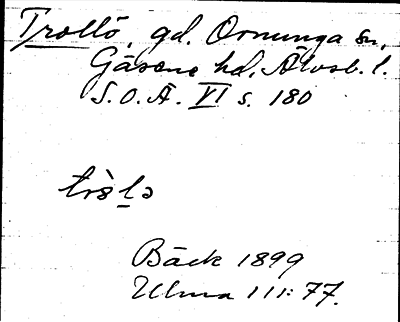 Trollö, gd. Ornunga sn,
Gäsene hd, Älvsb. l.
S.O.Ä. VI s. 180
Bäck 1899
Ulma 111:77.